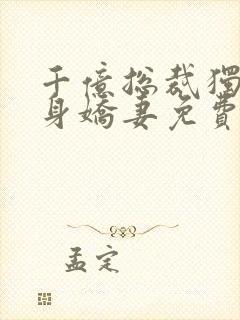 千億總裁獨
身嬌妻免費
孟定